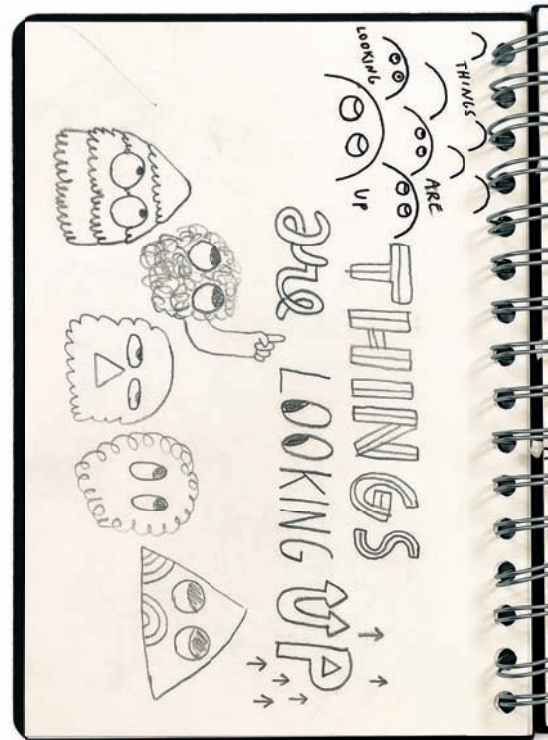 THINGS
ARE
LOOKING
UP
THINGS
are
LOOKING
UP